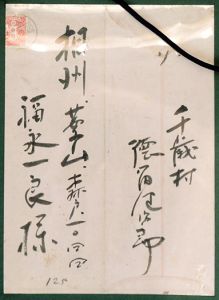 相州葉山森戸一〇四四
福永一良様
千歳村
徳冨健次郎
125